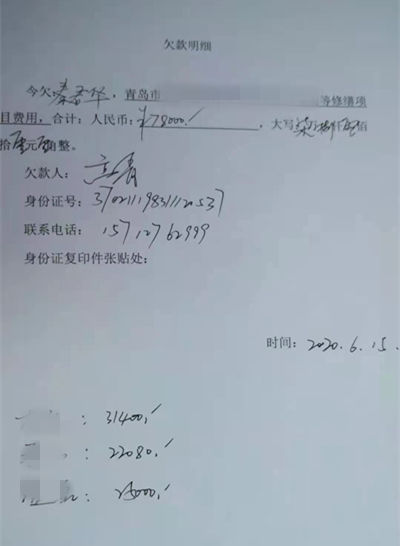 欠款明细
今欠秦香华，青岛市 等修缮项
目费用，合计：人民币：￥78000./ ，大写柒万捌仟零佰
拾零元零角整。
欠款人：
身份证号：370211198311120537
联系电话：15712762999
身份证复印件张贴处：
时间：2020.6.15.
：31400./
：22080./
：25000./